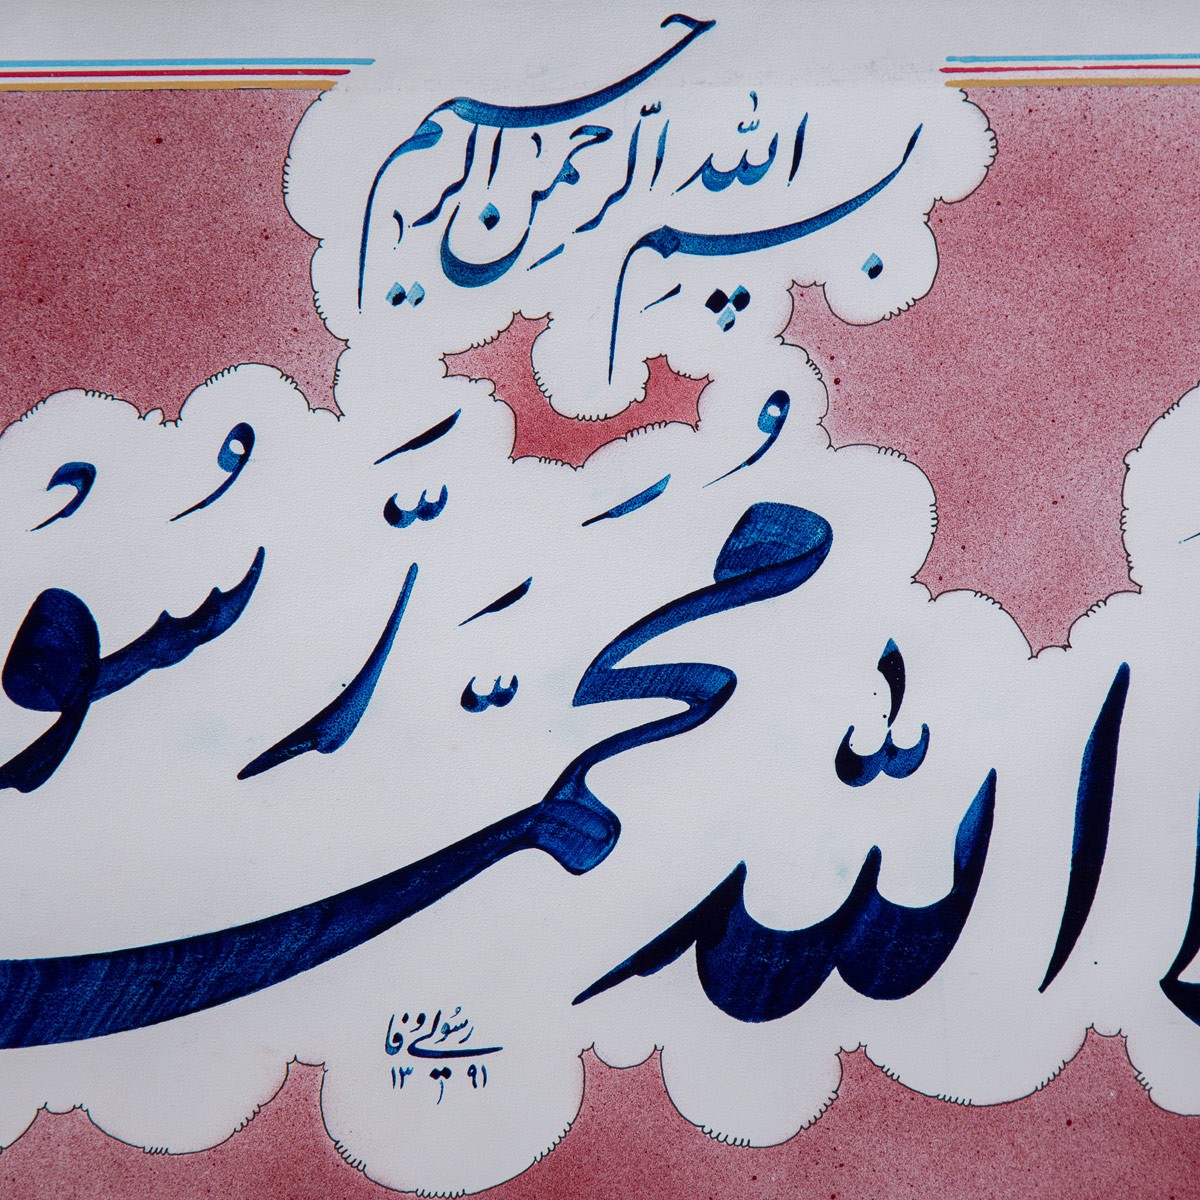 بسم الله الرحمن الرحیم
الله مُحَمَّد رَّسُو
رسولی وفا
۱۳۹۱